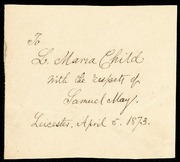 To
L. Maria Child
with the respects of
Samuel May.
Leicester, April 5. 1873.